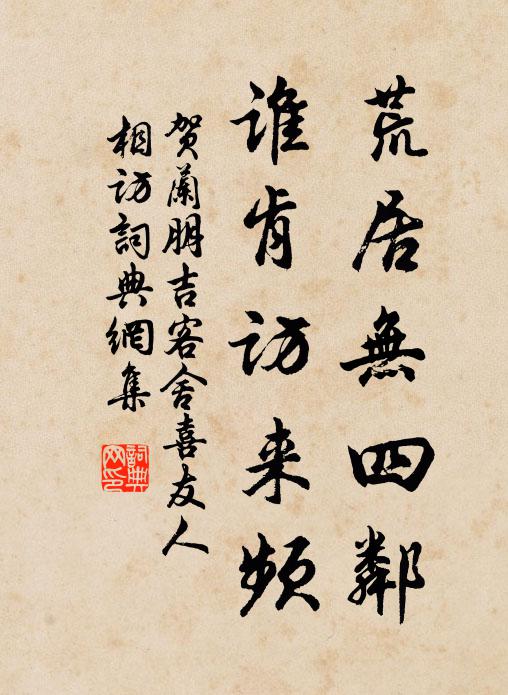 荒居無四鄰
誰肯訪来頻
贺蘭朋吉客舍喜友人
相訪詞典網集
詞典网印